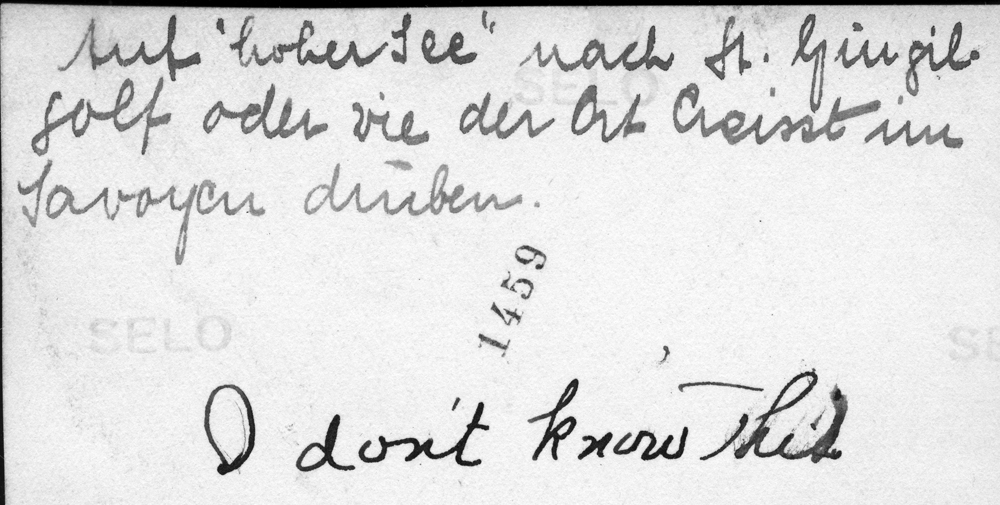 Auf "hoher See" nach St. Gingil-
golf oder wie der Ort heisst im
Savoyen drüben.
SELO
1459
SELO
SE
I don't know this